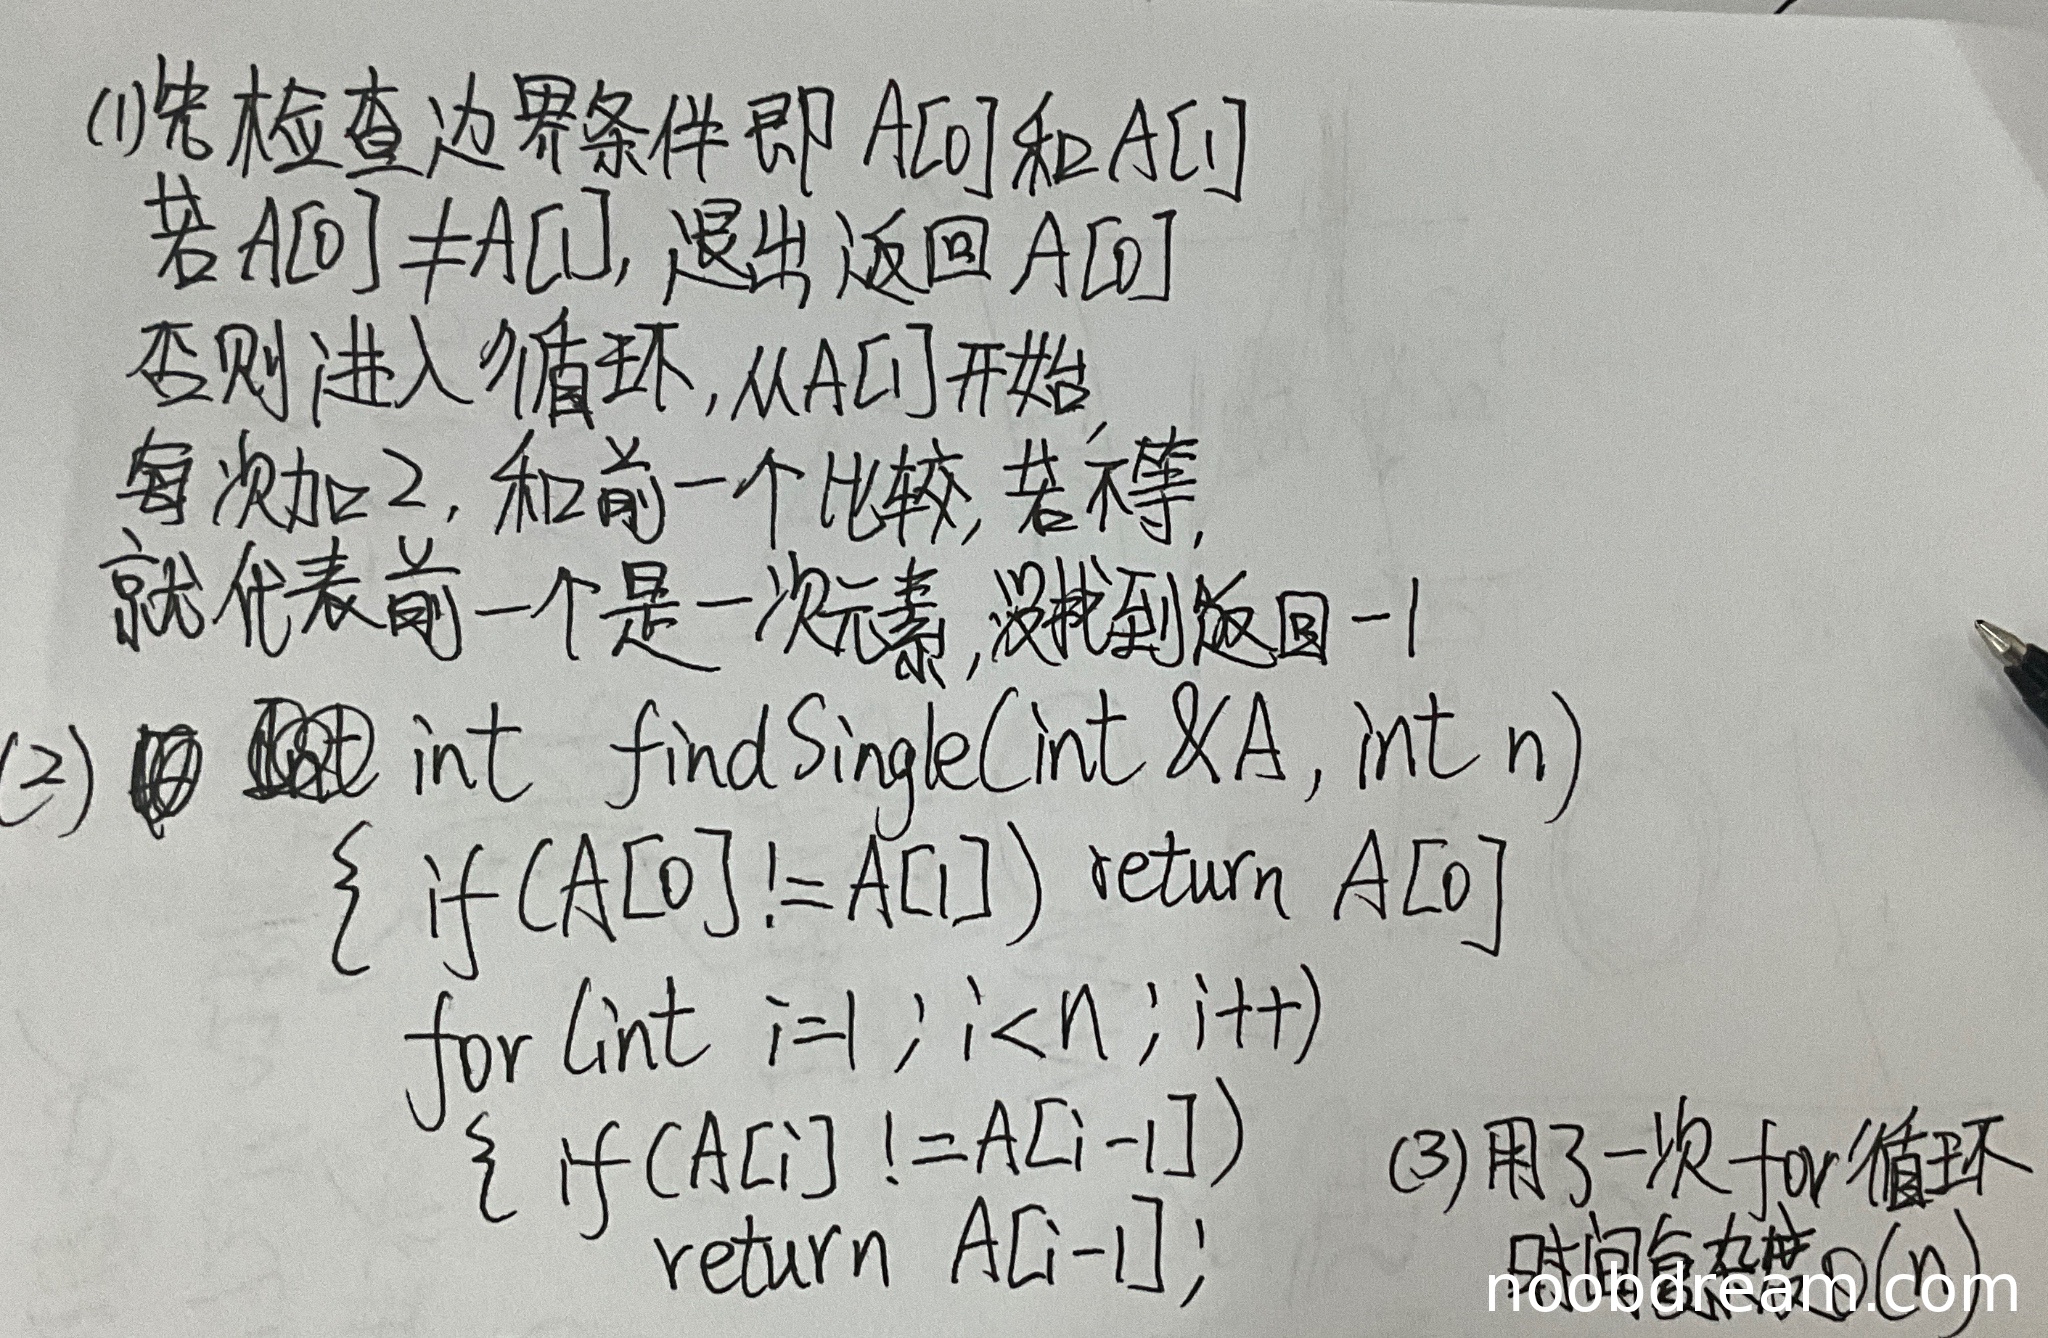 (1)先检查边界条件即A[0]和A[1]
若A[0]≠A[1],退出返回A[0]
否则进入循环,从A[1]开始,
每次加2,和前一个比较,若不等,
就代表前一个是一次元素,没找到返回-1
(2) int findSingle(int &A, int n)
{ if(A[0]!=A[1]) return A[0]
for(int i=1; i<n; i++)
{ if(A[i] != A[i-1])
return A[i-1];
(3)用了一次for循环
时间复杂度O(n)
noobdream.com